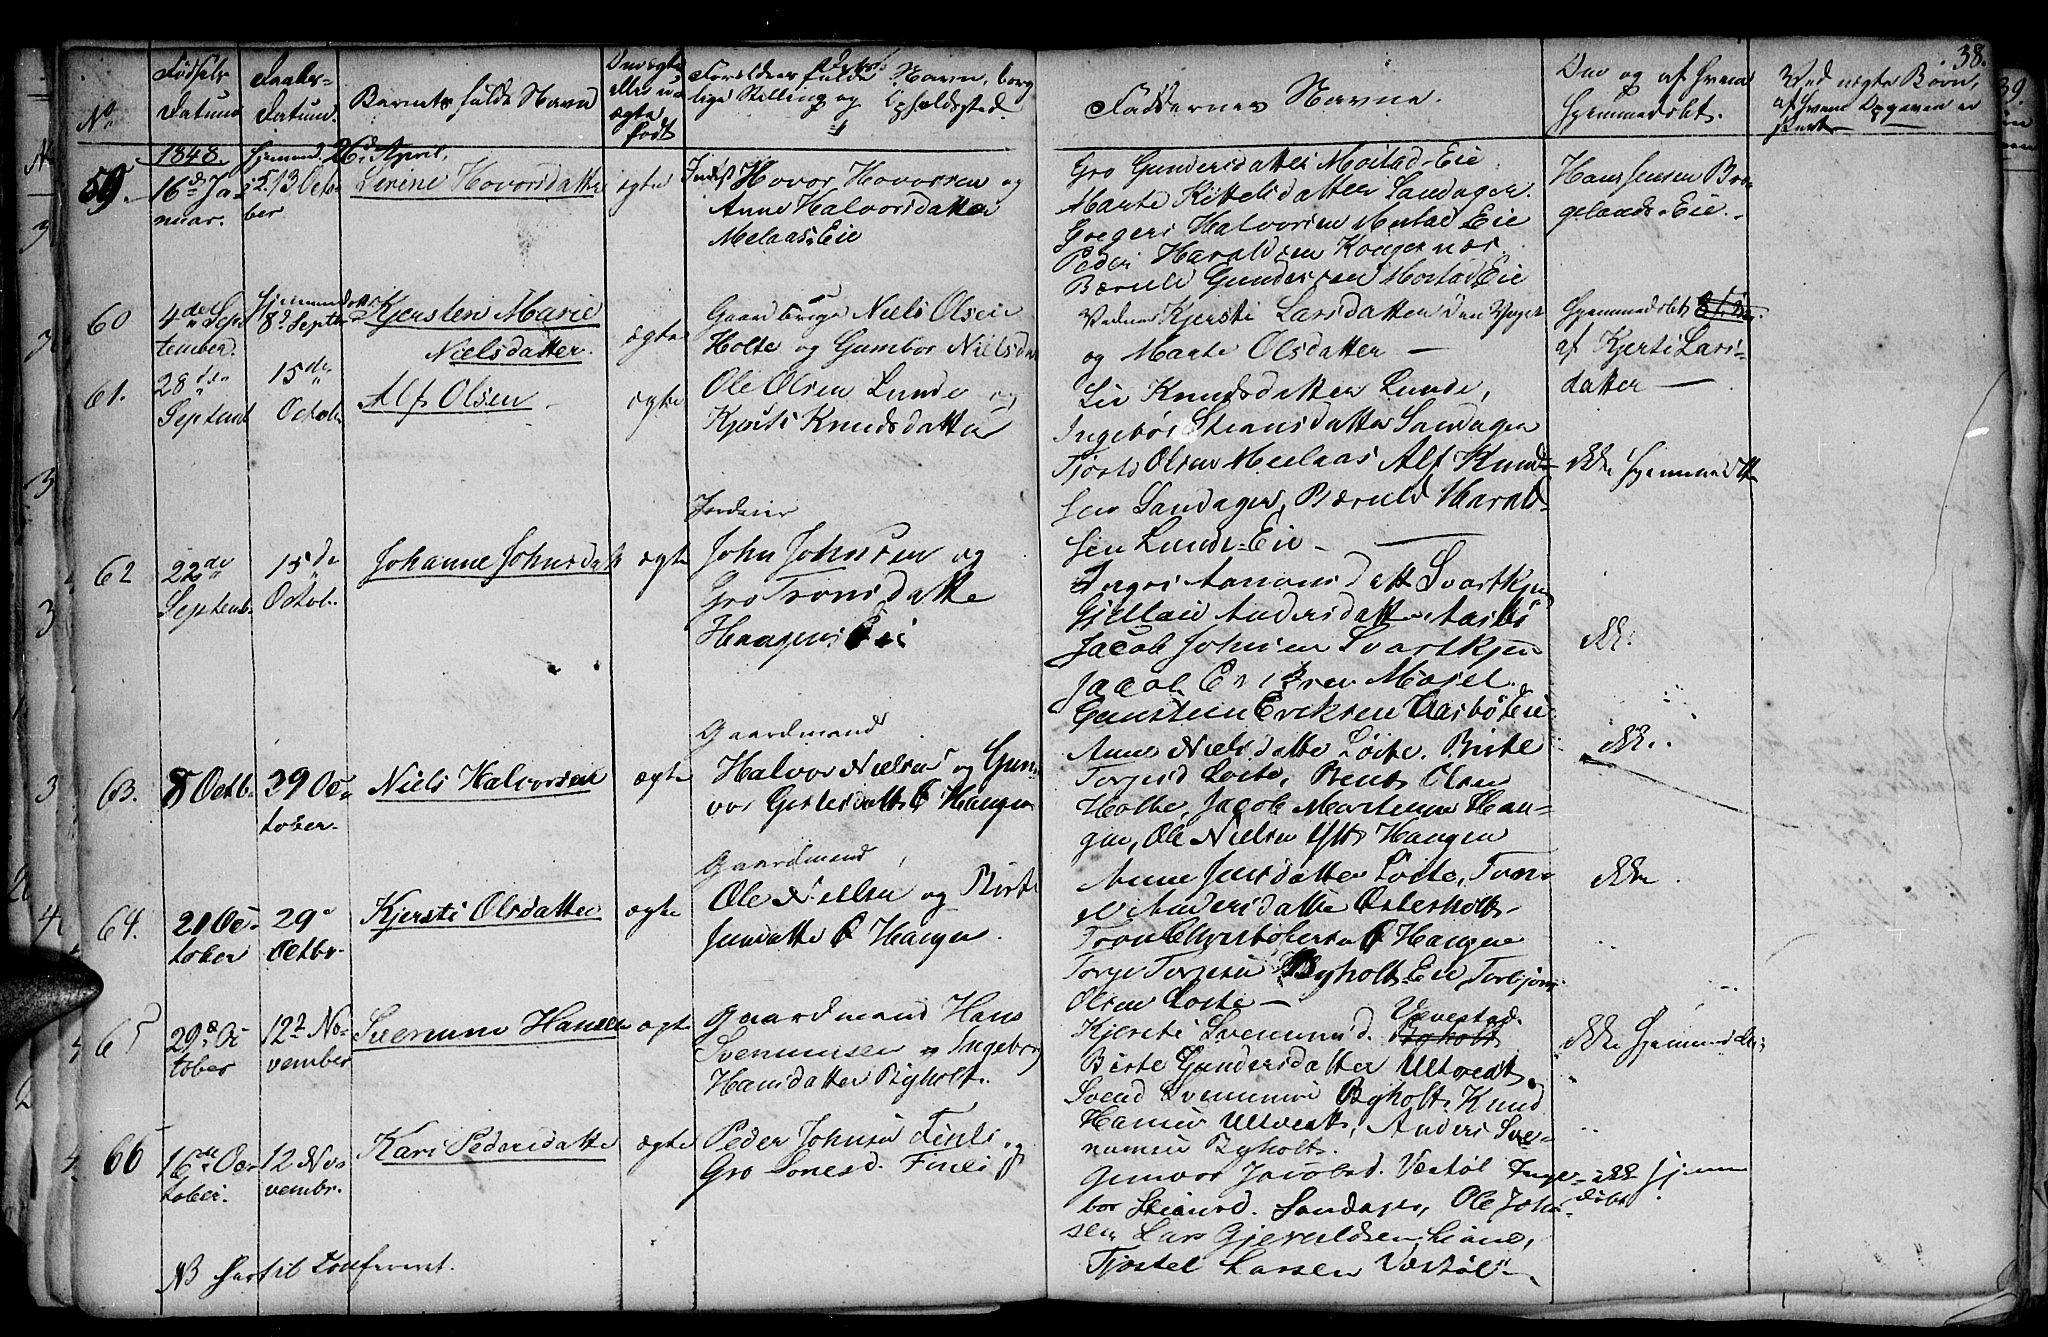 38.
No
Fødsels Datum
Daabs-Datum.
Barnets fulde Navn
ægte eller uægte født
Forældres fulde Navn, borglige Stilling og Opholdssted.
Faddernes Navne.
Om og af hvem hjemmedøbt.
Ved uægte Børn, af hvem Opgaven er skeet
1848. hjemmed. 26de April.
59.
16de Januar.
13 October
Serine Hovorsdatter
ægte
Hovor Hovorsen og
Anne Halvorsdatter
Melaas Eie
Gro Gundersdatter Mostad-Eie
Marte Kittelsdatter Sandager.
Gregers Halvorsen Mostad Eie
Peder Haraldsen Kongernæs
Bærulf Gundersen Mostad Eie
Hans Jensen Bregelands-Eie.
60
4de September.
8de Septbr
Kjersten Marie
Nielsdatter.
ægte
Gaardbruger Niels Olsen
Holte og Gumbor Nielsd
Kjersti Larsdatter den Yngre
og Marte Olsdatter —
Hjemmedøbt
af Kjersti Larsdatter —
61.
28de Septemb
15de Octob
Alf Olsen
ægte
Ole Olsen Lunde og
Kjersti Knudsdatter
Siv Knudsdatter Lunde,
Ingebor Steansdatter Sandager
Tjøstel Olsen Melaas Alf Knudsen
Sandager, Bærulf Haraldsen
Lunde-Eie —
ikke hjemmedøbt
62
22de Septemb.
15de Octob.
Johanne Johnsdatt
ægte
John Johnsen og
Gro Tronsdatter
Haugens Eie
Inger Aanonsdatt Svartkjen
Andersdatter Aasbø
Jacob Johnsen Svartkjen
Jacob Eriksen Mosel.
Gunsteen Eriksen Aasbø Eie
ikk.
63.
8 Octb.
29 October.
Niels Halvorsen
ægte
Gaardmand
Halvor Nielsen og Gunvor
Haugen
Anne Nielsdatter Løite. Birte
Torjesd Løite, Bent Olsen
Holte, Jacob Mortensen Haugen,
Ole Nielsen Haugen
ikk.
64.
21 October
29de Octbr.
Kjersti Olsdatter
ægte
Gaardmand
Ole Nielsen og Birte
Jensdatter Ø Haugen.
Anne Jensdatter Løite,
Andersdatter Østerholt
Tron Christophersen Ø Haugen
Torje Torjesen Bygholt Eie, Torbjørn
Olsen Løite —
ikke.
65
29de October
12te November
Svenum Hansen
ægte
Gaardmand Hans
Svenumsen og Ingeborg
Hansdatter Bygholt.
Kjersti Svenumsd. Vevestad
Birte Gundersdatter Ultveit,
Svend Svenumsen Bygholt. Knud
Hansen Ultveit, Anders Svenumsen
Bygholt.
ikke hjemmedøbt
66
16de October.
12 Novembr.
Kari Pedersdatter
ægte
Peder Johnsen Finli og
Gro Lonesd. Finli
Gunvor Jacobsd. Væstøl Ingebor
Steansd. Sandager, Ole Johnsen
Lars Gjeruldsen Liane,
Tjøstel Larsen Væstøl —
ikke hjemmedøbt
NB hertil Confereret.